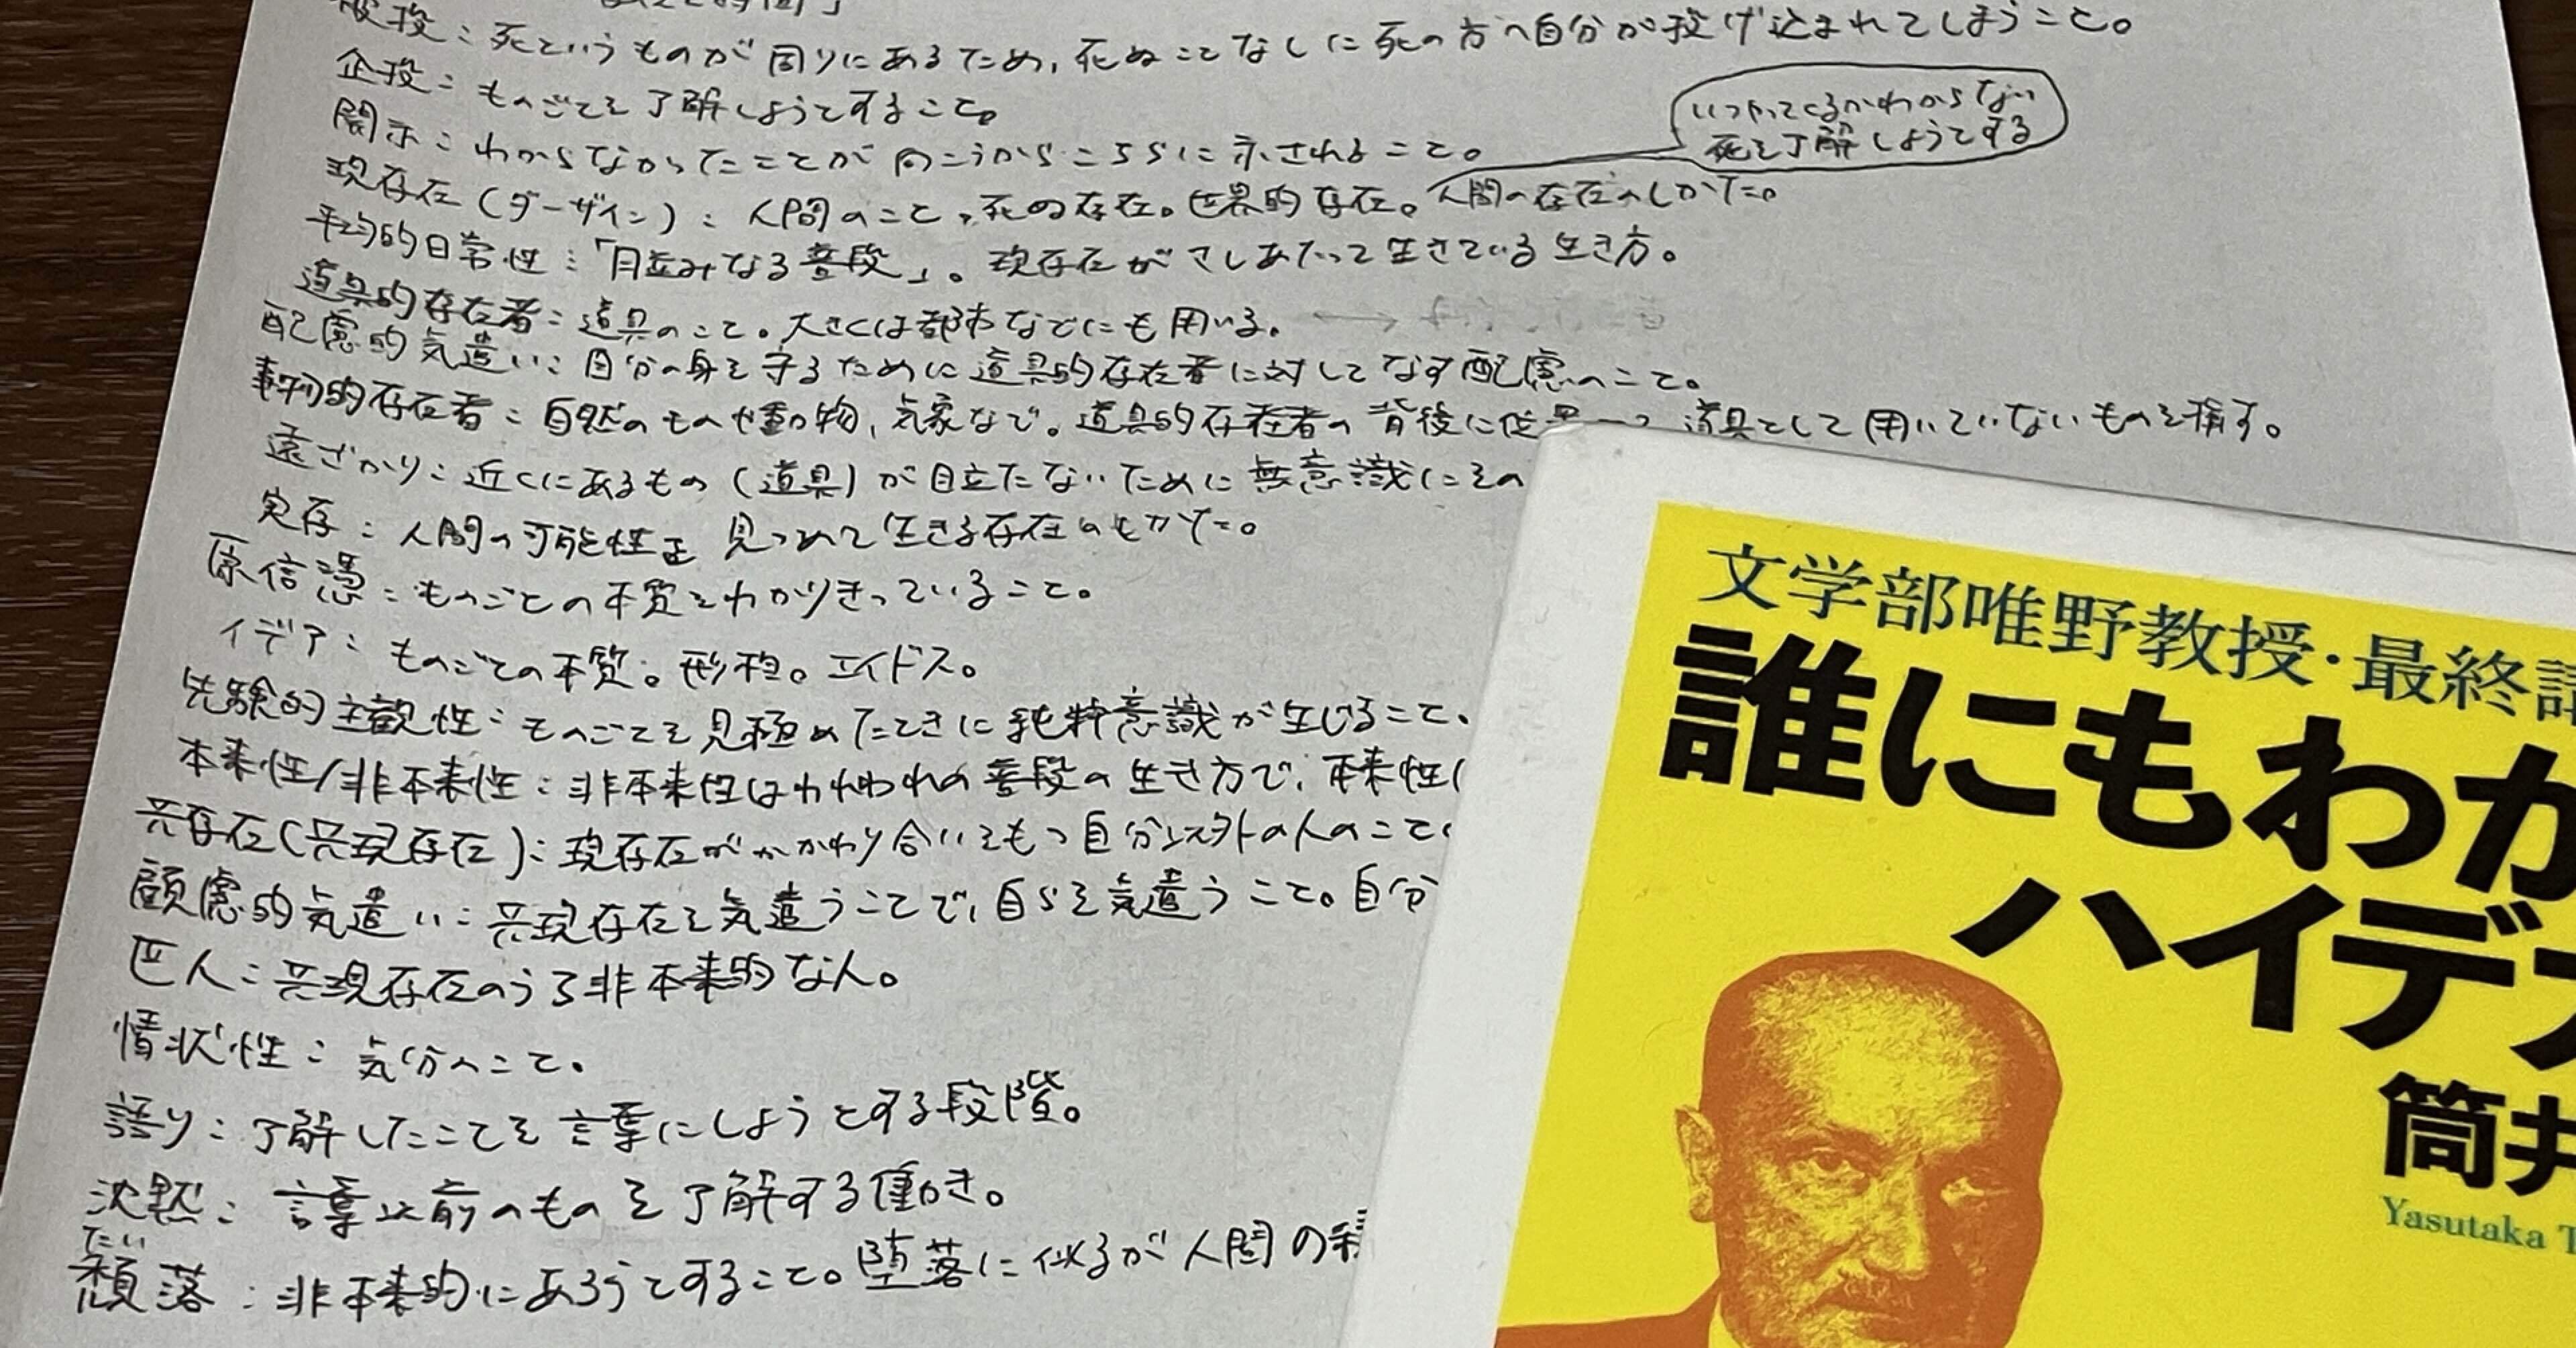 被投：死というものが周りにあるため、死ぬことなしに死の方へ自分が投げ込まれてしまうこと。
企投：ものごとを了解しようとすること。
いつやってくるかわからない
死を了解しようとする
開示：わからなかったことが向こうからこちらに示されること。
現存在（ダーザイン）：人間のこと。死の存在。世界的存在。人間の存在のしかた。
平均的日常性：「月並みなる普段」。現存在がさしあたって生きている生き方。
道具的存在者：道具のこと。大きくは都市などにも用いる。
配慮的気遣い：自分の身を守るために道具的存在者に対してなす配慮のこと。
事物的存在者：自然のものや動物、気象など。道具的存在者の背後に位置 道具として用いていないものを指す。
遠ざかり：近くにあるもの（道具）が目立たないために無意識にその
実存：人間の可能性を見つめて生きる存在のしかた。
原信憑：ものごとの本質をわかりきっていること。
イデア：ものごとの本質。形相。エイドス。
先験的主観性：ものごとを見極めたときに純粋意識が生じること。
本来性/非本来性：非本来性はわれわれの普段の生き方で、本来性は
共存在（共現存在）：現存在がかかわり合いをもつ自分以外の人のこと。
顧慮的気遣い：共現存在を気遣うことで、自らを気遣うこと。自分
世人：共現存在のうち非本来的な人。
情状性：気分のこと。
語り：了解したことを言葉にしようとする段階。
沈黙：言葉以前のものを了解する働き。
たい
頽落：非本来的にあろうとすること。堕落に似るが人間の
文学部唯野教授・最終講
誰にもわか
ハイデ
筒井
Yasutaka T